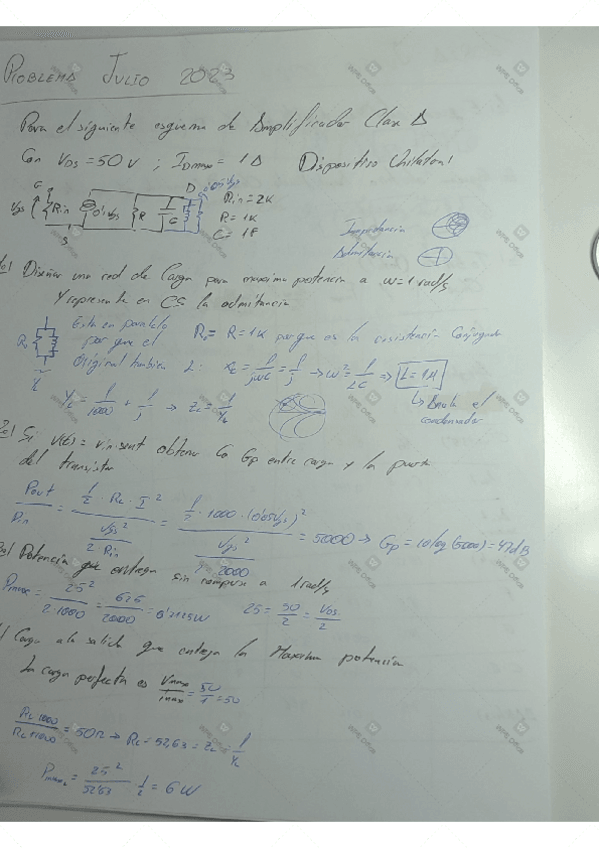 PROBLEMA JULIO 2023
Para el siguiente esquema de Amplificador Clase A
Con VDS = 50 V ; IDmax = 1 A Dispositivo Unilateral
G D 0'05Vgs
Vgs Rin 0'1Vgs R C
S
Rin = 2K
R = 1K
C = 1F
Impedancia
Admitancia
1) Diseñar una red de Carga para maxima potencia a w = 1 rad/s
Y represente en CS la admitancia
Esta en paralelo
por que el
original tambien
RL = R = 1K por que es la resistencia Conjugada
L: Xc = 1/jwC = 1/j → w² = 1/LC ⇒ L = 1H
↳ Anula el
condensador
YL = 1/1000 + 1/j → ZL = 1/YL
2) Si v(t) = vin·sent obtener la Gp entre carga y la puerta
del transistor
Pout/Pin = (1/2 · RL · I²)/(Vgs²/2Rin) = (1/2 · 1000 · (0'05Vgs)²)/(Vgs²/2 · 2000) = 5000 → Gp = 10log(5000) = 37dB
3) Potencia que entrega sin romperse a 1 rad/s
Pmax = 25²/2·1000 = 625/2000 = 0'3125W 25 = 50/2 = VDS/2
4) Carga a la salida que entrega la Maxima potencia
La carga perfecta es Vmax/Imax = 50/1 = 50
RL·1000/RL+1000 = 50Ω → RL = 52,63 = ZL = 1/YL
Pmax = 25²/52'63 1/2 = 6 W